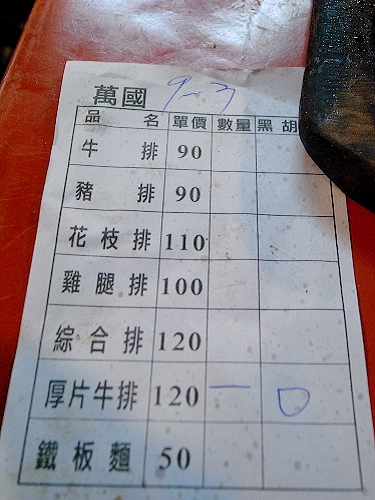 萬國 9-3
品名 單價 數量 黑胡
牛排 90
豬排 90
花枝排 110
雞腿排 100
綜合排 120
厚片牛排 120 一
鐵板麵 50